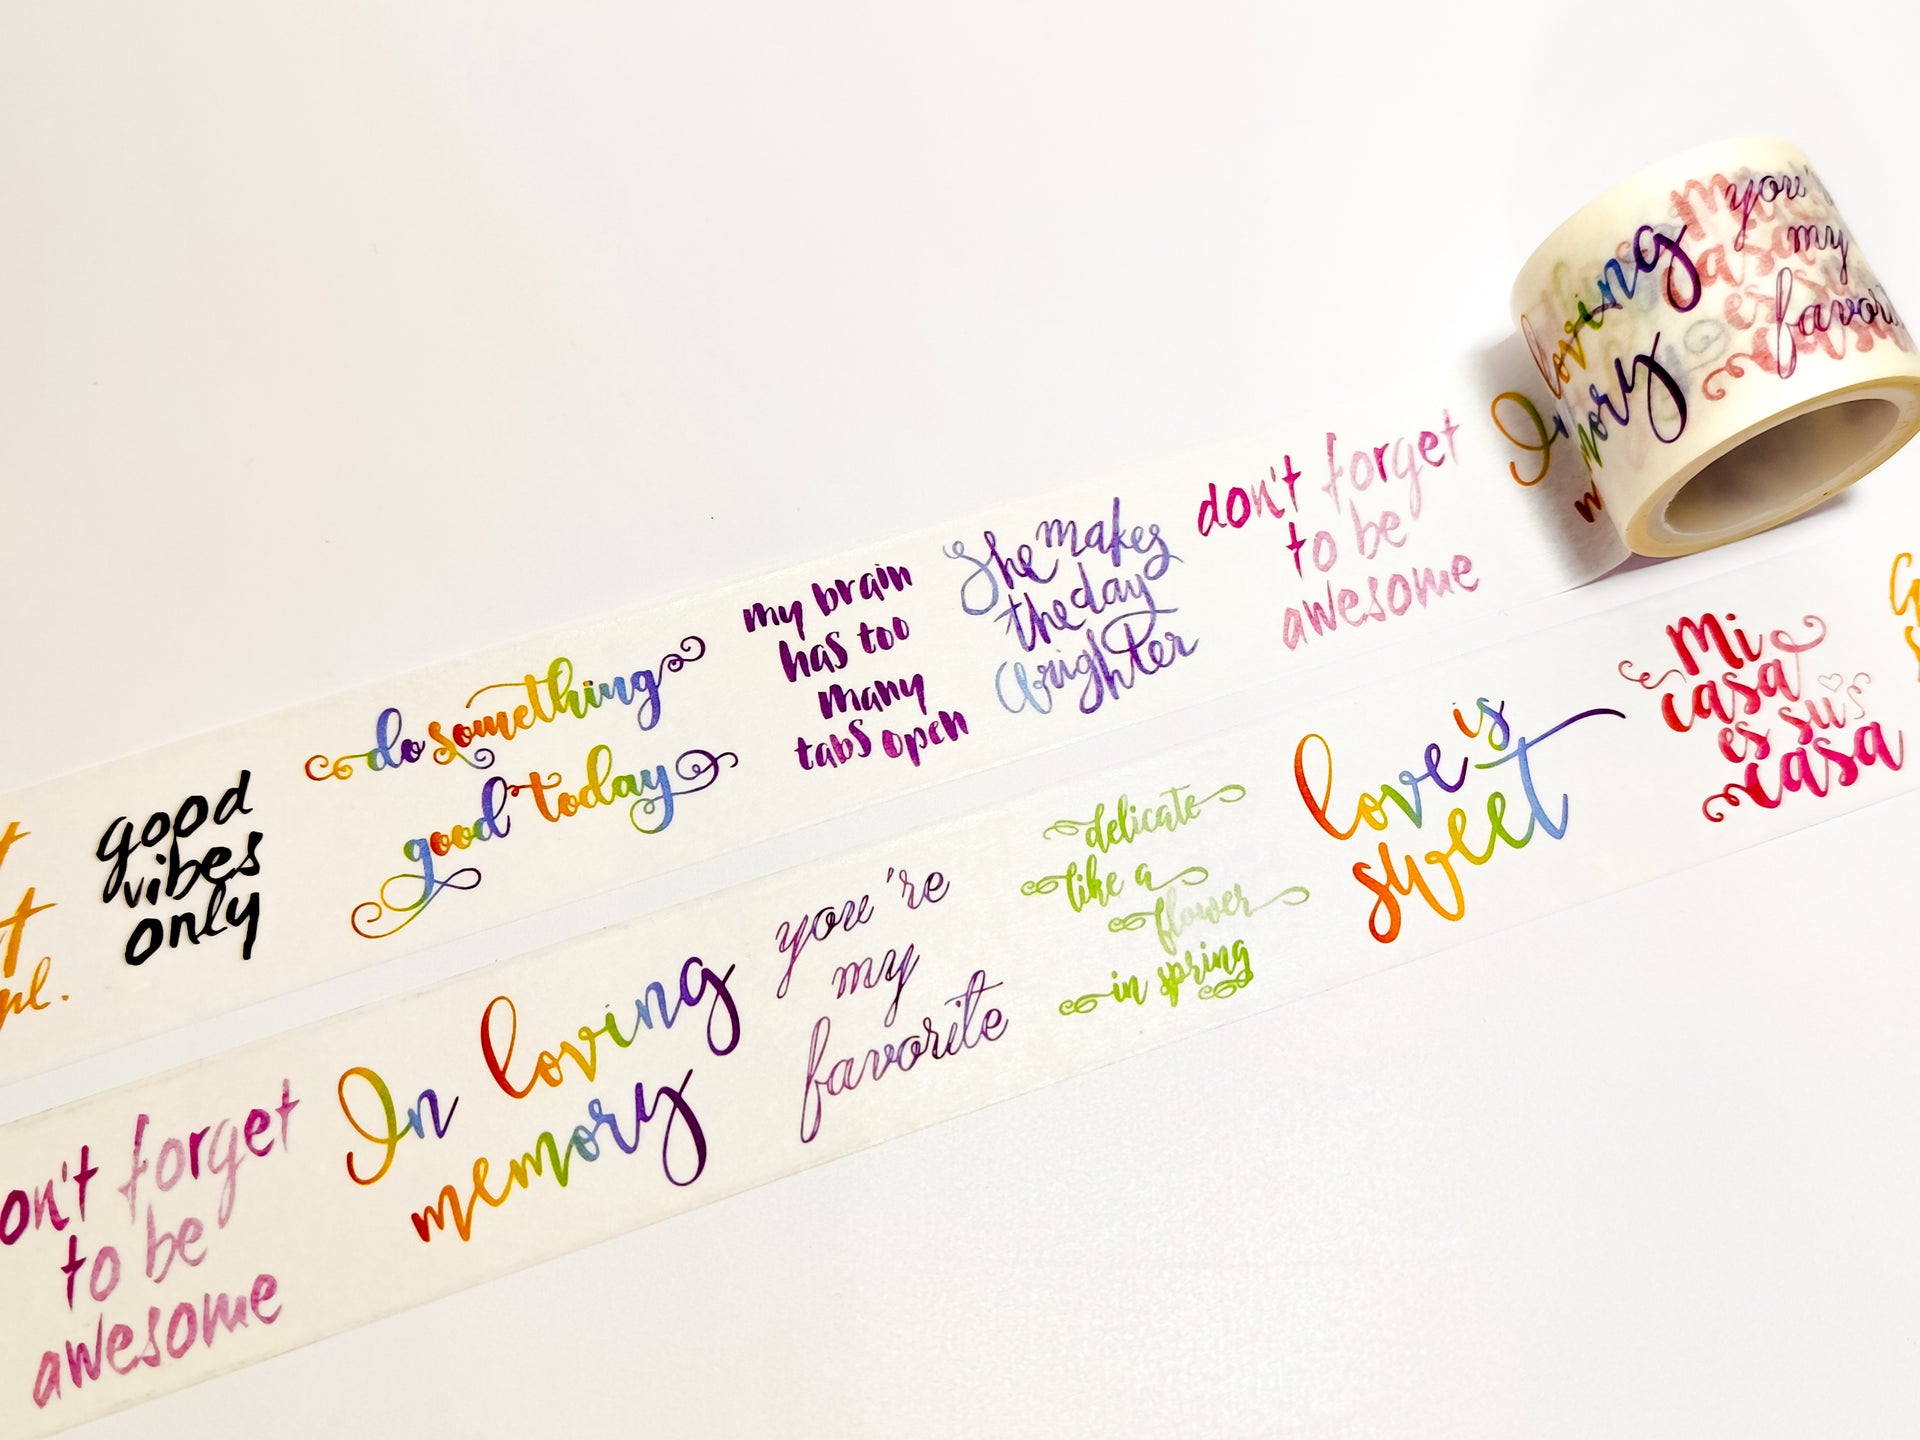 good
vibes
only
do something
good today
my brain
has too
many
tabs open
She makes
the day
brighter
don't forget
to be
awesome
In
loving
memory
you're
my
favorite
Mi
casa
es su
casa
don't forget
to be
awesome
In loving
memory
you're
my
favorite
delicate
like a
flower
in spring
love is
sweet
Mi
casa
es su
casa